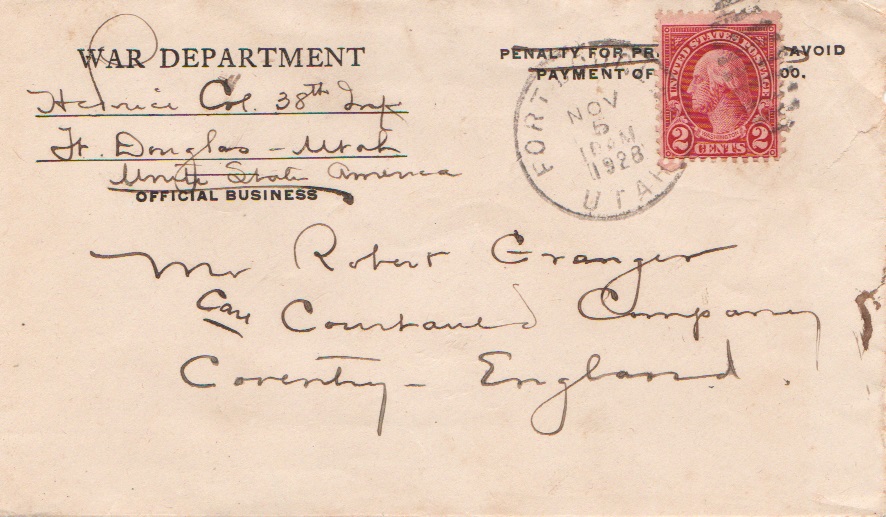 WAR DEPARTMENT
PENALTY FOR PR AVOID
PAYMENT OF 00.
Col. 38th Inf
Ft. Douglas - Utah
United States America
OFFICIAL BUSINESS
FORT
NOV
5
1 PM
1928
UTAH
UNITED STATES POSTAGE
2 CENTS 2
Mr Robert Granger
Care Courtauld Company
Coventry - England.